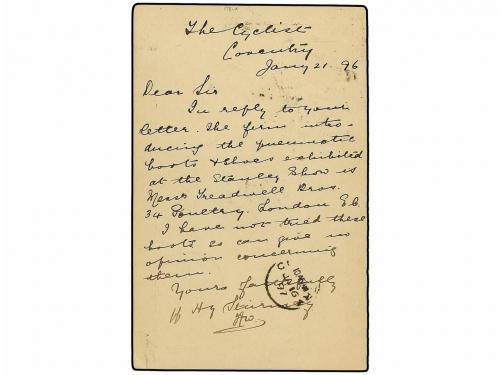 The Cyclist
Coventry
Jany 21. 96
Dear Sir
In reply to your
letter. The firm intro-
ducing the pneumatic
boots & shoes exhibited
at the Stanley Show is
Messrs Treadwell Bros.
34 Poultry. London E.C.
I have not tried these
boots so can give no
opinion concerning
them.
Yours faithfully
Hy Sturmey